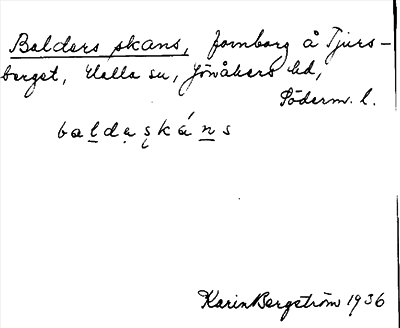 Balders skans, fornborg å Tjurs-
berget, Halla sn, Jönåkers hd,
Söderm. l.
baldạskáns
Karin Bergström 1936